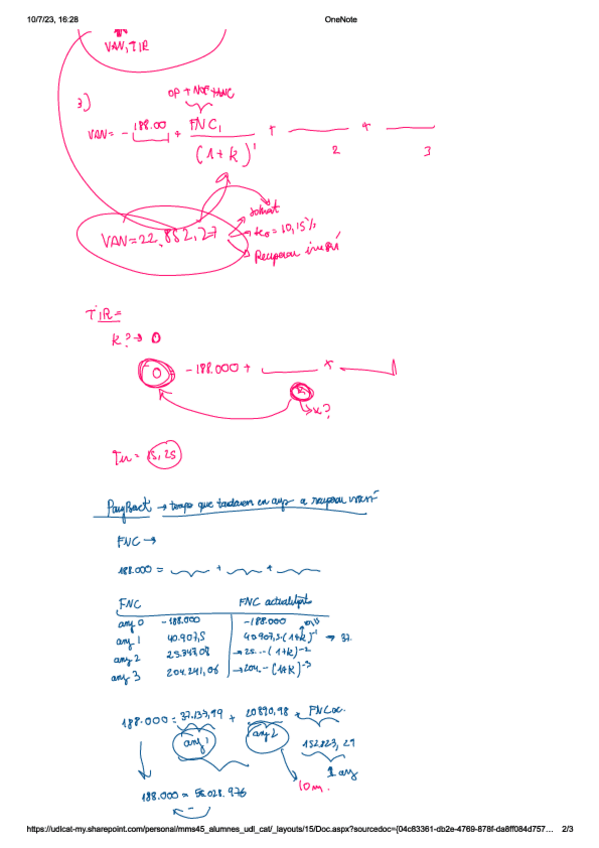 10/7/23, 16:28 OneNote
VAN, TIR
3)
OP + NOF + ANC
VAN = - 188.00 + FNC₁ + +
(1+k)¹ 2 3
VAN = 22.882,27
ko = 10,15%
Recuperar inversió
TIR =
k? → 0
0 - 188.000 + +
k?
Tir = 15,25
PayBack → temps que tardarem en anys a recuperar inversió
FNC →
188.000 = + +
FNC FNC actualitzats
any 0 -188.000 -188.000
any 1 40.907,5 40.907,5·(1+k)⁻¹ → 37.
any 2 25.347,08 → 25...·(1+k)⁻²
any 3 204.241,06 → 204.-(1+k)⁻³
188.000 = 37.137,99 + 20890,98 + FNCac.
any 1 any 2 152.823,29
1 any
10 m.
188.000 = 58.028.976
https://udlcat-my.sharepoint.com/personal/mms45_alumnes_udl_cat/_layouts/15/Doc.aspx?sourcedoc={04c83361-db2e-4769-878f-da8ff084d757… 2/3